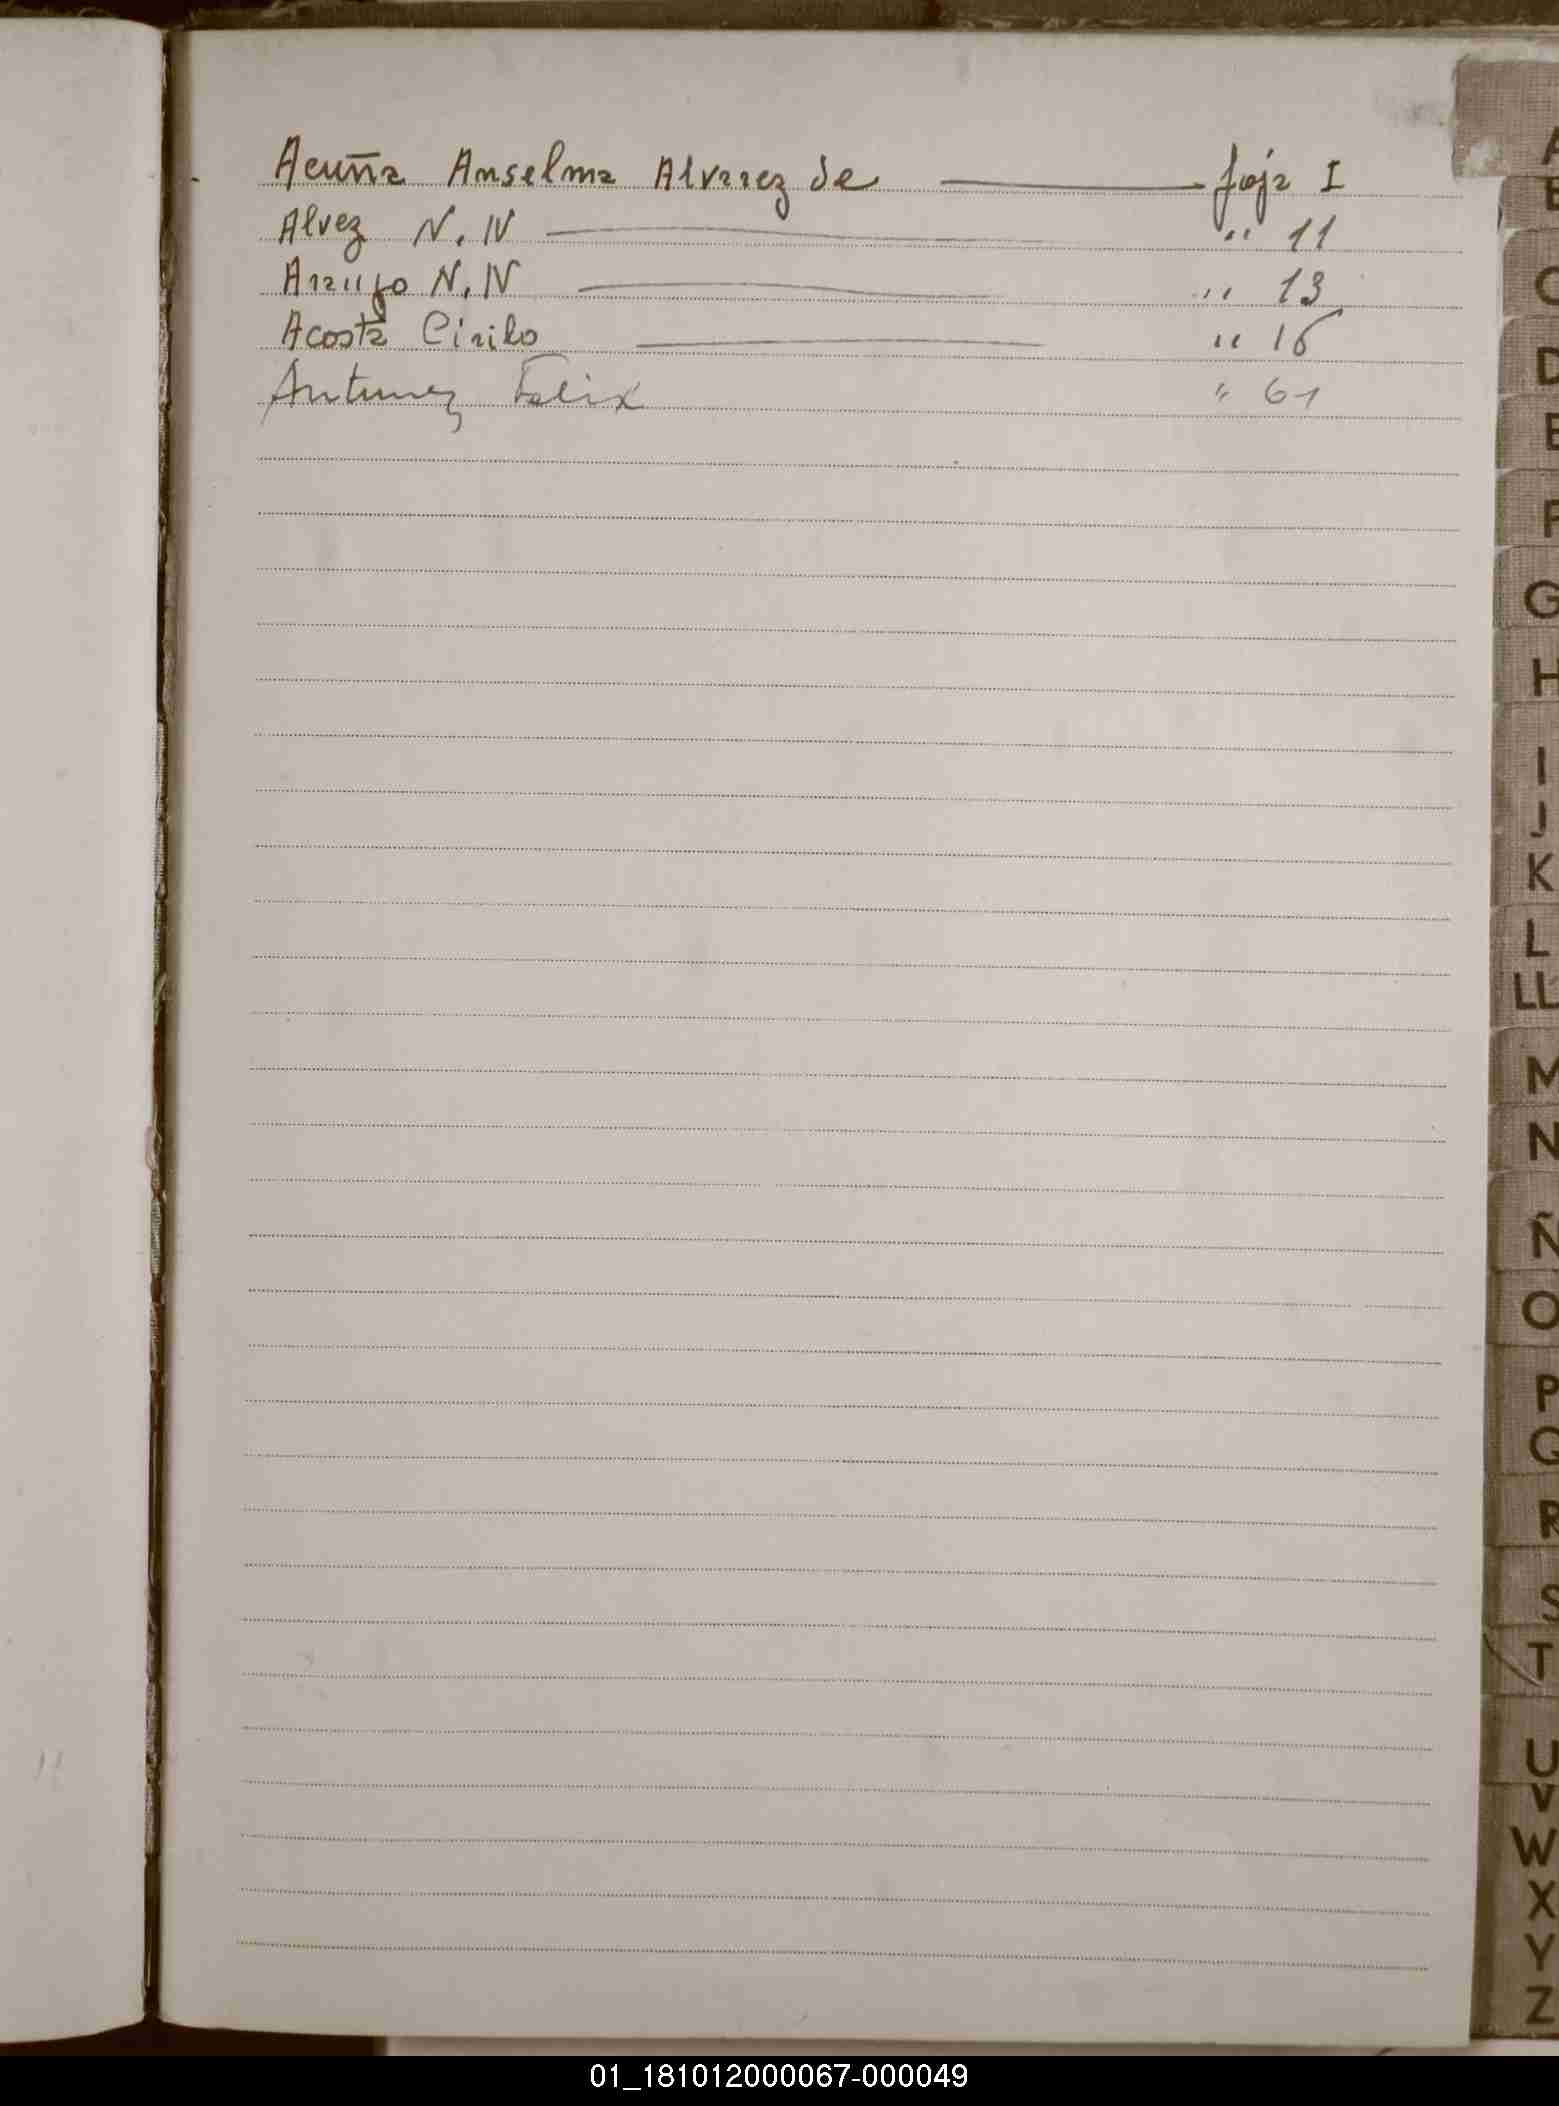 Acuña Anselma Alvarez de ——— foja I
Alvez N. N ——— " 11
Araujo N. N ——— " 13
Acosta Cirilo ——— " 16
Antunez Felix " 61
A
B
C
D
E
F
G
H
I
J
K
L
LL
M
N
Ñ
O
P
Q
R
S
T
U
V
W
X
Y
Z
01_181012000067-000049